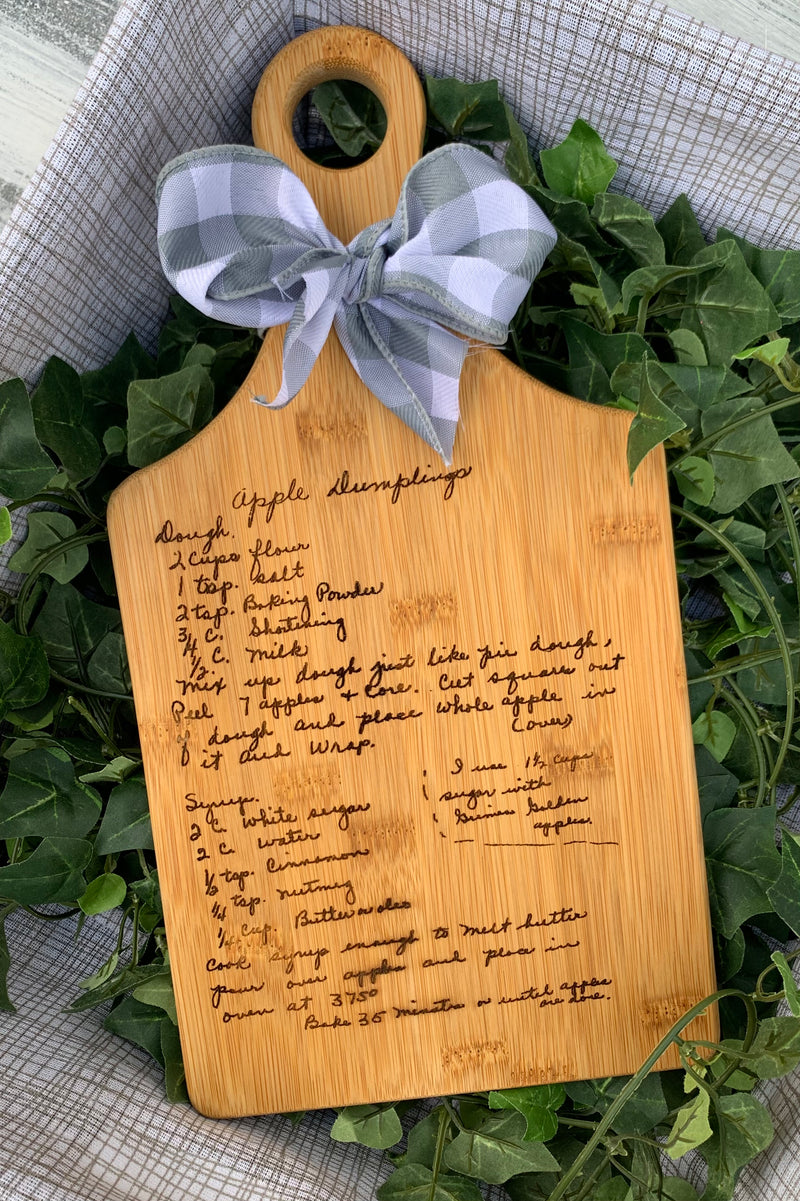 Apple Dumplings
Dough.
2 Cups flour
1 tsp. salt
2 tsp. Baking Powder
3/4 C. Shortening
1/2 C. Milk
Mix up dough just like pie dough,
Peel 7 apples + Core. Cut square out
of dough and place whole apple in
it and wrap.
(over)
Syrup.
2 C. White sugar
2 C. Water
1/2 tsp. Cinnamon
1/4 tsp. Nutmeg
1/4 cup. Butter or oleo
Cook syrup enough to melt butter
pour over apples and place in
oven at 375°
Bake 35 Minutes or until apples
are done.
I use 1 1/2 cups
sugar with
Grimes Golden
apples.